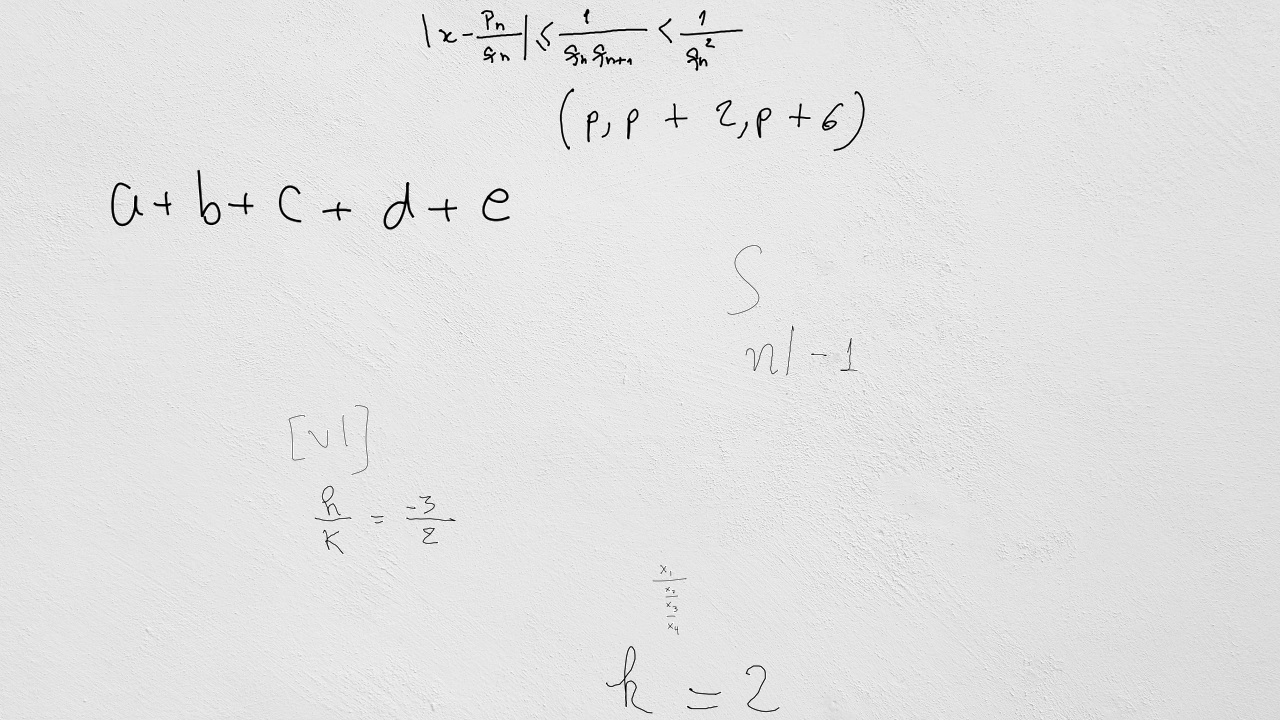 |x - p_n/q_n| ≤ 1/(q_n q_{n+1}) < 1/q_n^2
(p, p + 2, p + 6)
a + b + c + d + e
S
n! - 1
[v1]
h/k = -3/2
x_1/(x_2/(x_3/x_4))
k = 2